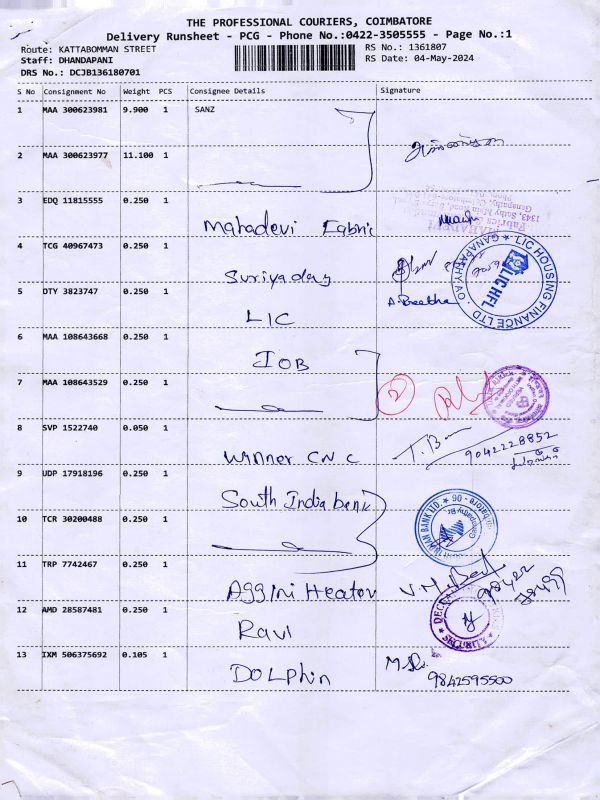 THE PROFESSIONAL COURIERS, COIMBATORE
Delivery Runsheet - PCG - Phone No.:0422-3505555 - Page No.:1
Route: KATTABOMMAN STREET
RS No.: 1361807
Staff: DHANDAPANI
RS Date: 04-May-2024
DRS No.: DCJB136180701
S No Consignment No Weight PCS Consignee Details Signature
1 MAA 300623981 9.900 1 SANZ
2 MAA 300623977 11.100 1
3 EDQ 11815555 0.250 1 Mahadevi Fabric
4 TCG 40967473 0.250 1 Suriyadev
5 DTY 3823747 0.250 1 LIC
LIC HOUSING FINANCE LTD
LICHFL
6 MAA 108643668 0.250 1 IOB
7 MAA 108643529 0.250 1
2
8 SVP 1522740 0.050 1 Winner CNC
9042228852
9 UDP 17918196 0.250 1 South India bank
10 TCR 30200488 0.250 1
11 TRP 7742467 0.250 1 Aggini Heator
12 AMD 28587481 0.250 1 Ravi
SECURITY
13 IXM 506375692 0.105 1 DOLPhin
9842595500